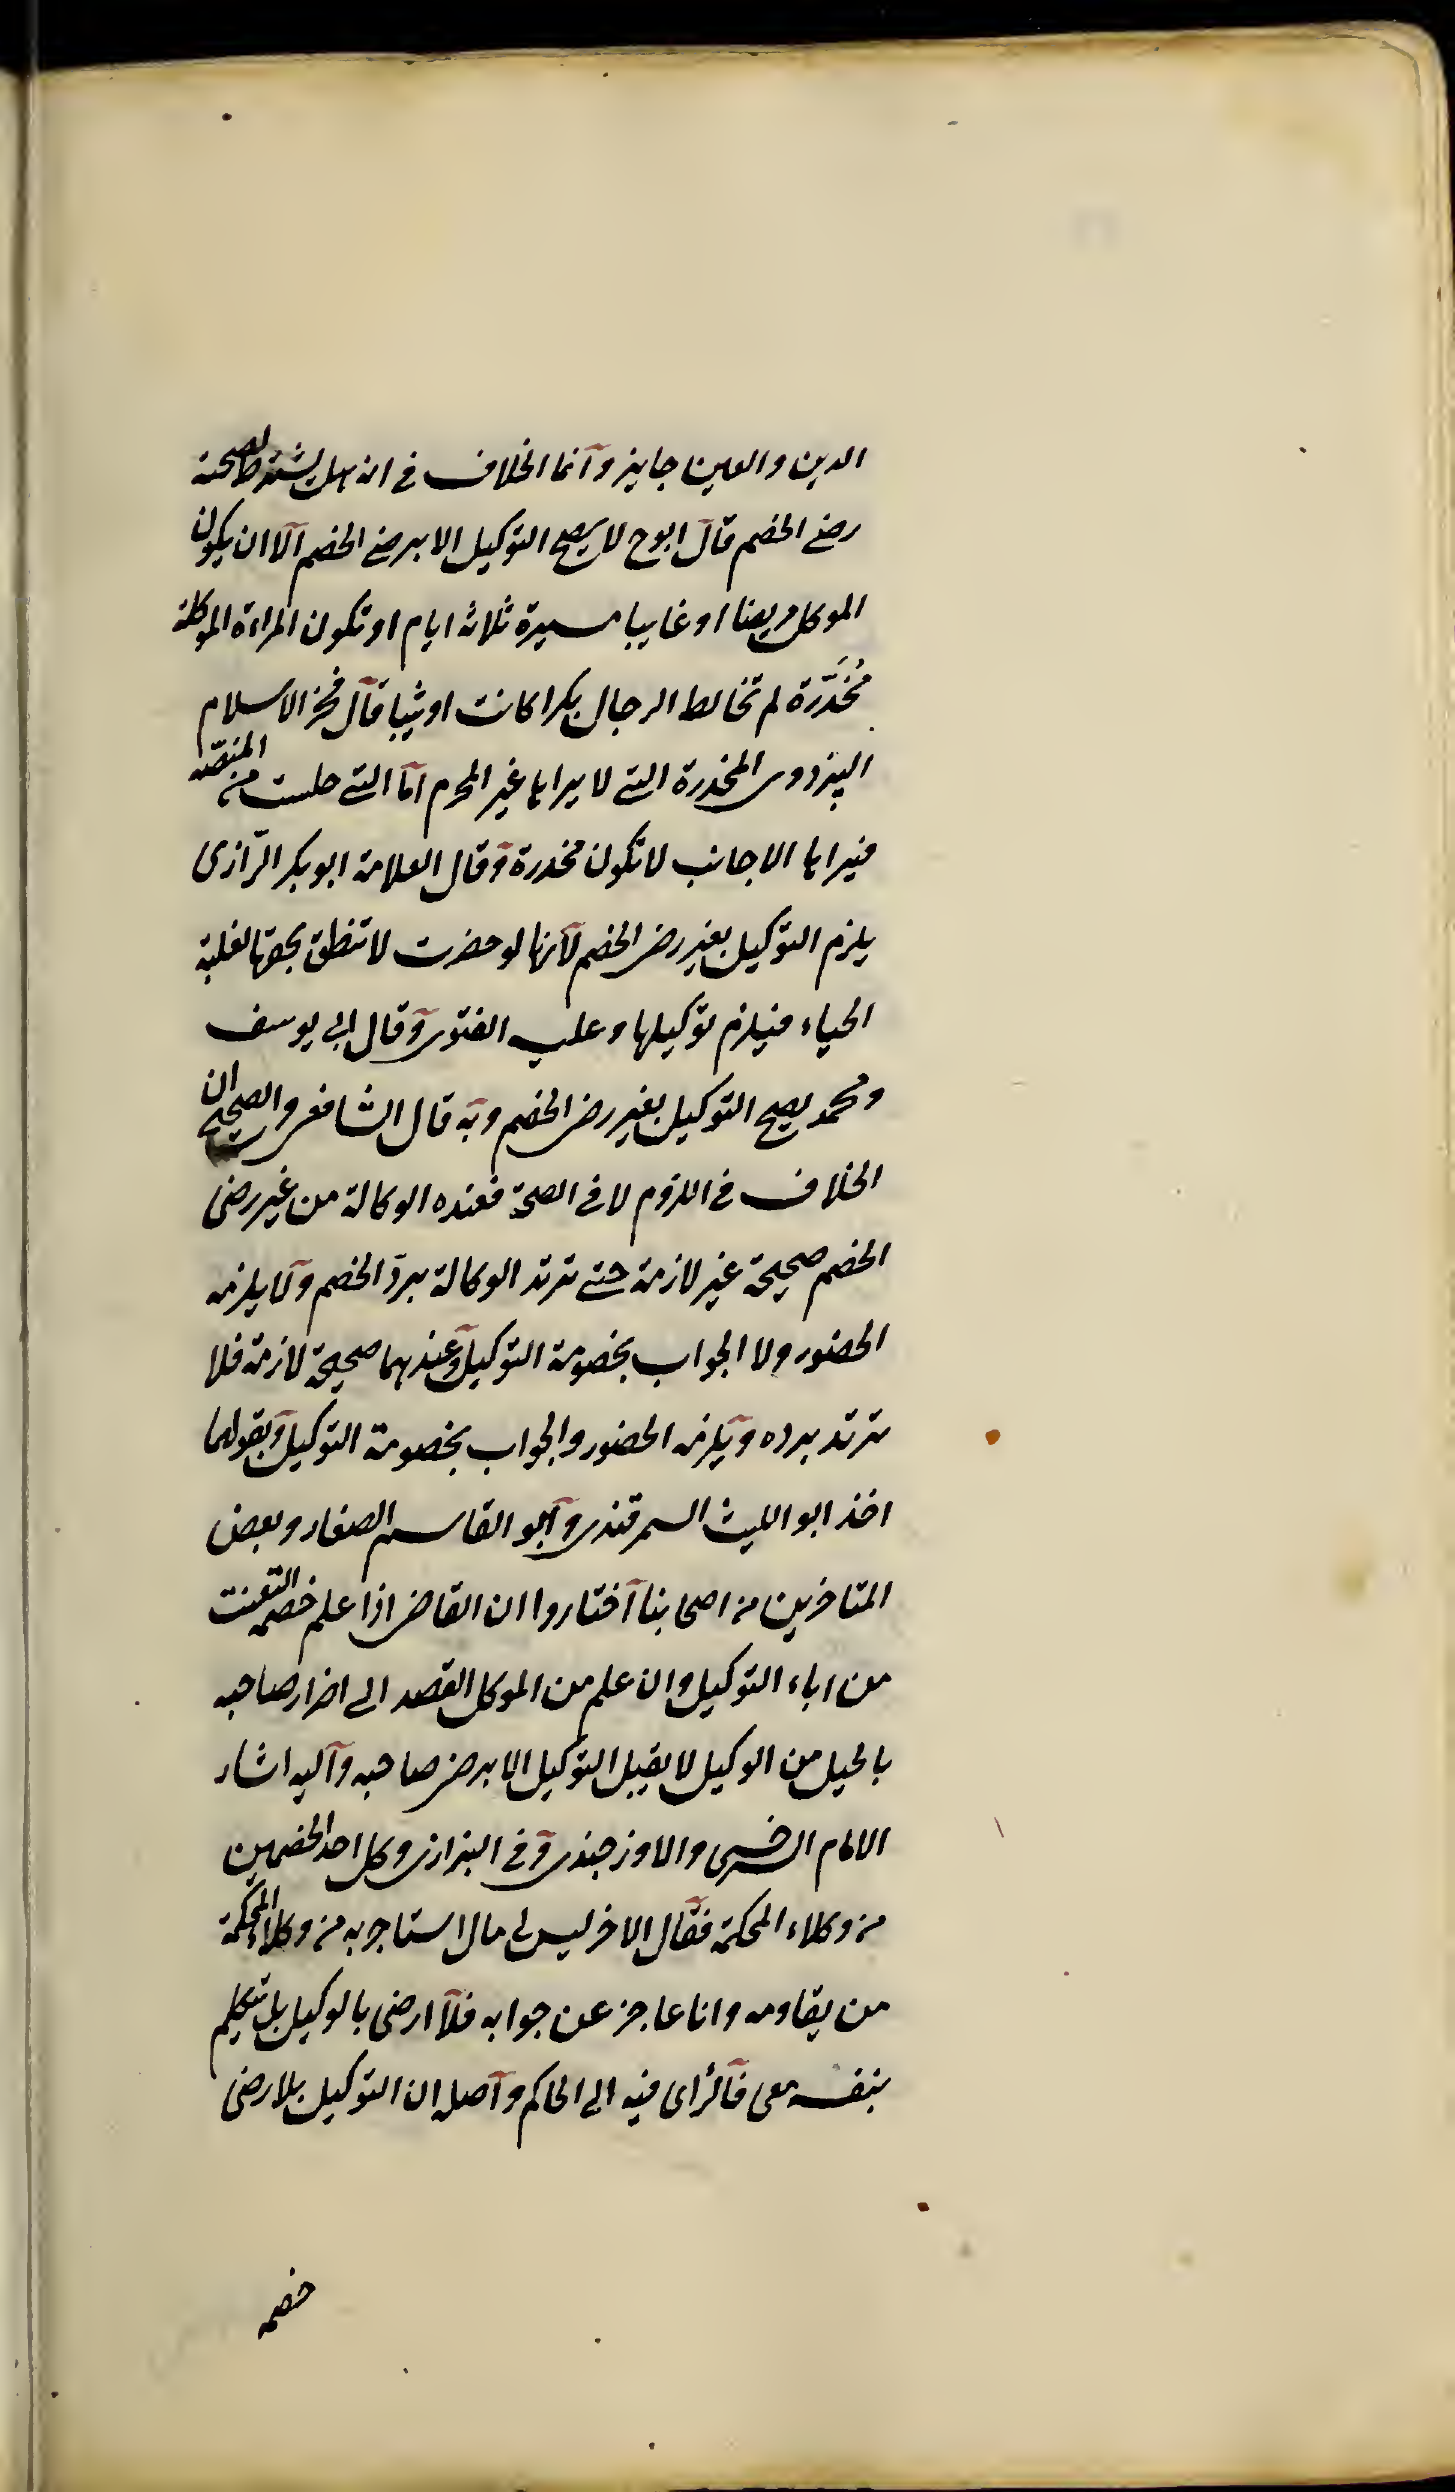 الدين والعين جايز وانما الخلاف فى انه هل يشترط لصحته
رضى الخصم قال ابوح لا يصح التوكيل الا برضى الخصم الا ان يكون
الموكل مريضا او غايبا مسيرة ثلاثة ايام او تكون المراءة الموكلة
مُخَدَّرَة لم تخالط الرجال بكرا كانت او ثيبا قال فخر الاسلام
البزدوى المخدرة التى لا يراها غير المحرم اما التى جلست من المنصّه
فيراها الاجانب لا تكون مخدرة وقال العلامة ابو بكر الرّازى
يلزم التوكيل بغير رضى الخصم لانها لو حضرت لا تنطق بحقها لغلبة
الحياء فيلزم توكيلها وعليه الفتوى وقال ابى يوسف
ومحمد يصح التوكيل بغير رضى الخصم وبه قال الشافعى والصحيح ان
الخلاف فى اللزوم لا فى الصحة فعنده الوكالة من غير رضى
الخصم صحيحة غير لازمة حتى ترتد الوكالة بردّ الخصم ولا يلزمه
الحضور ولا الجواب بخصومة التوكيل وعندهما صحيحة لازمة فلا
ترتد برده ويلزمه الحضور والجواب بخصومة التوكيل وبقولهما
اخذ ابو الليث السمرقندى وابو القاسم الصفار وبعض
المتاخرين من اصحابنا اختاروا ان القاضى اذا علم خصمه التعنت
من اباء التوكيل وان علم من الموكل القصد الى اضرار صاحبه
بالحيل من الوكيل لا يقبل التوكيل الا برضى صاحبه واليه اشار
الامام السرخسى والاوزجندى وفى البزازى وكل احد الخصمين
من وكلاء المحكمة فقال الاخر ليس لى مال استاجر به من وكلاء المحكمة
من يقاومه وانا عاجز عن جوابه فلا ارضى بالوكيل بل يتكلم
بنفسه معى فالرأى فيه الى الحاكم واصله ان التوكيل بلا رضى
خصمه